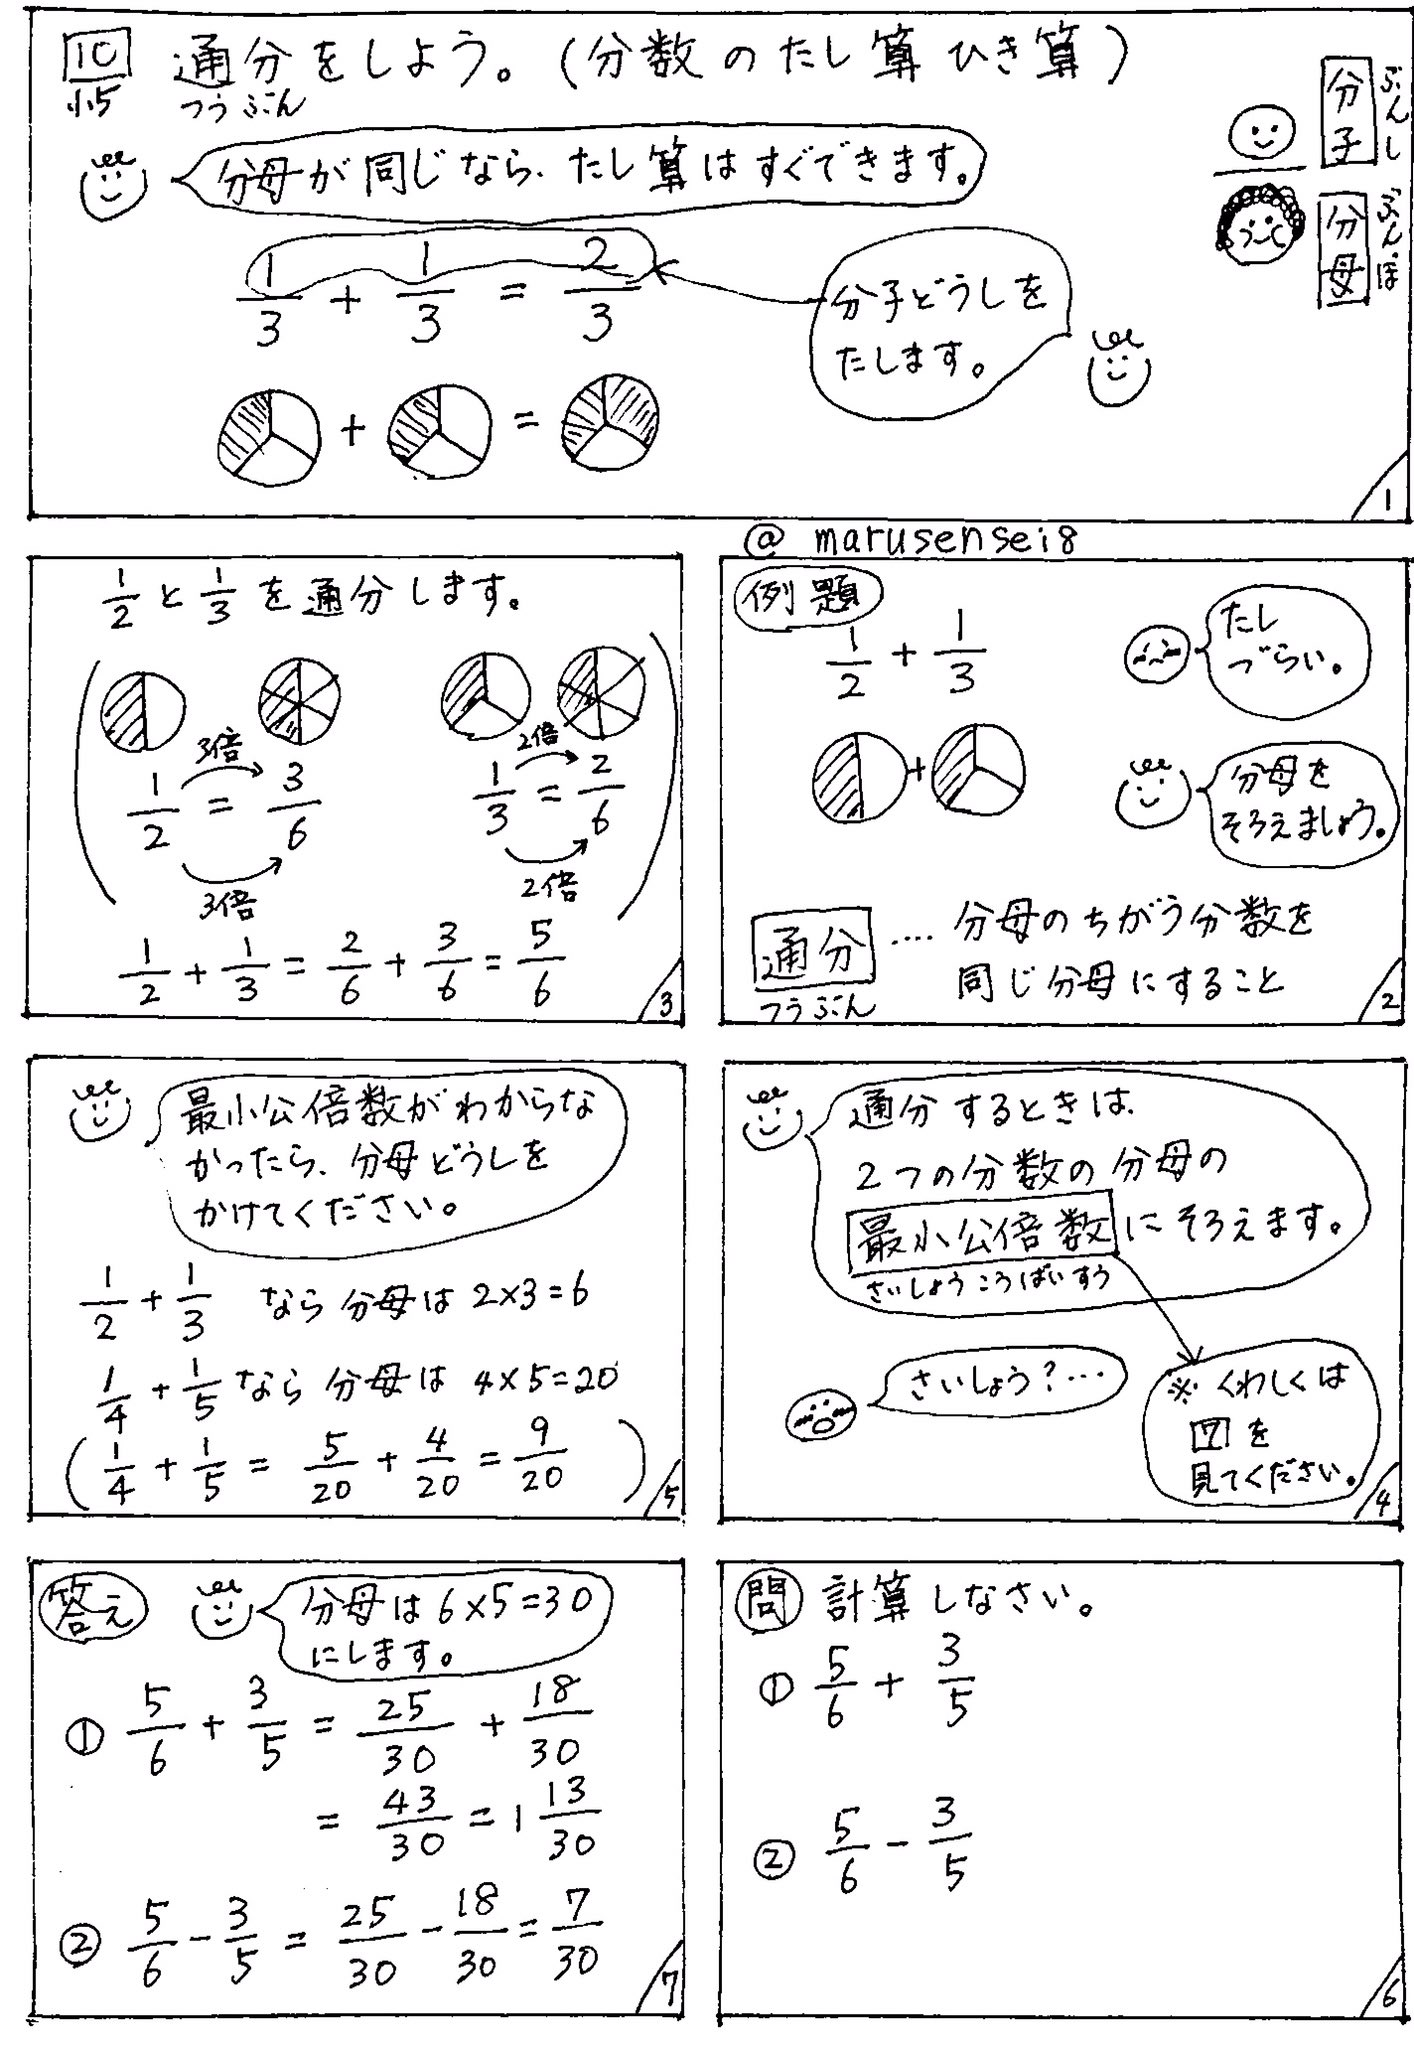 10 通分をしよう。(分数のたし算ひき算)
小5 つうぶん
分子 ぶんし
分母 ぶんぼ
分母が同じなら、たし算はすぐできます。
1/3 + 1/3 = 2/3
分子どうしを
たします。
+ =
1
@marusensei8
例題
1/2 + 1/3
たし
づらい。
+
分母を
そろえましょう。
通分 ‥‥ 分母のちがう分数を
つうぶん
同じ分母にすること
2
1/2と1/3を通分します。
3倍
1/2 = 3/6
3倍
2倍
1/3 = 2/6
2倍
1/2 + 1/3 = 2/6 + 3/6 = 5/6
3
通分するときは、
2つの分数の分母の
最小公倍数にそろえます。
さいしょうこうばいすう
さいしょう?…
※くわしくは
7を
見てください。
4
最小公倍数がわからな
かったら、分母どうしを
かけてください。
1/2 + 1/3 なら分母は2×3=6
1/4 + 1/5 なら分母は 4×5=20
(1/4 + 1/5 = 5/20 + 4/20 = 9/20)
5
問 計算しなさい。
① 5/6 + 3/5
② 5/6 - 3/5
6
答え
分母は6×5=30
にします。
① 5/6 + 3/5 = 25/30 + 18/30
= 43/30 = 1 13/30
② 5/6 - 3/5 = 25/30 - 18/30 = 7/30
7